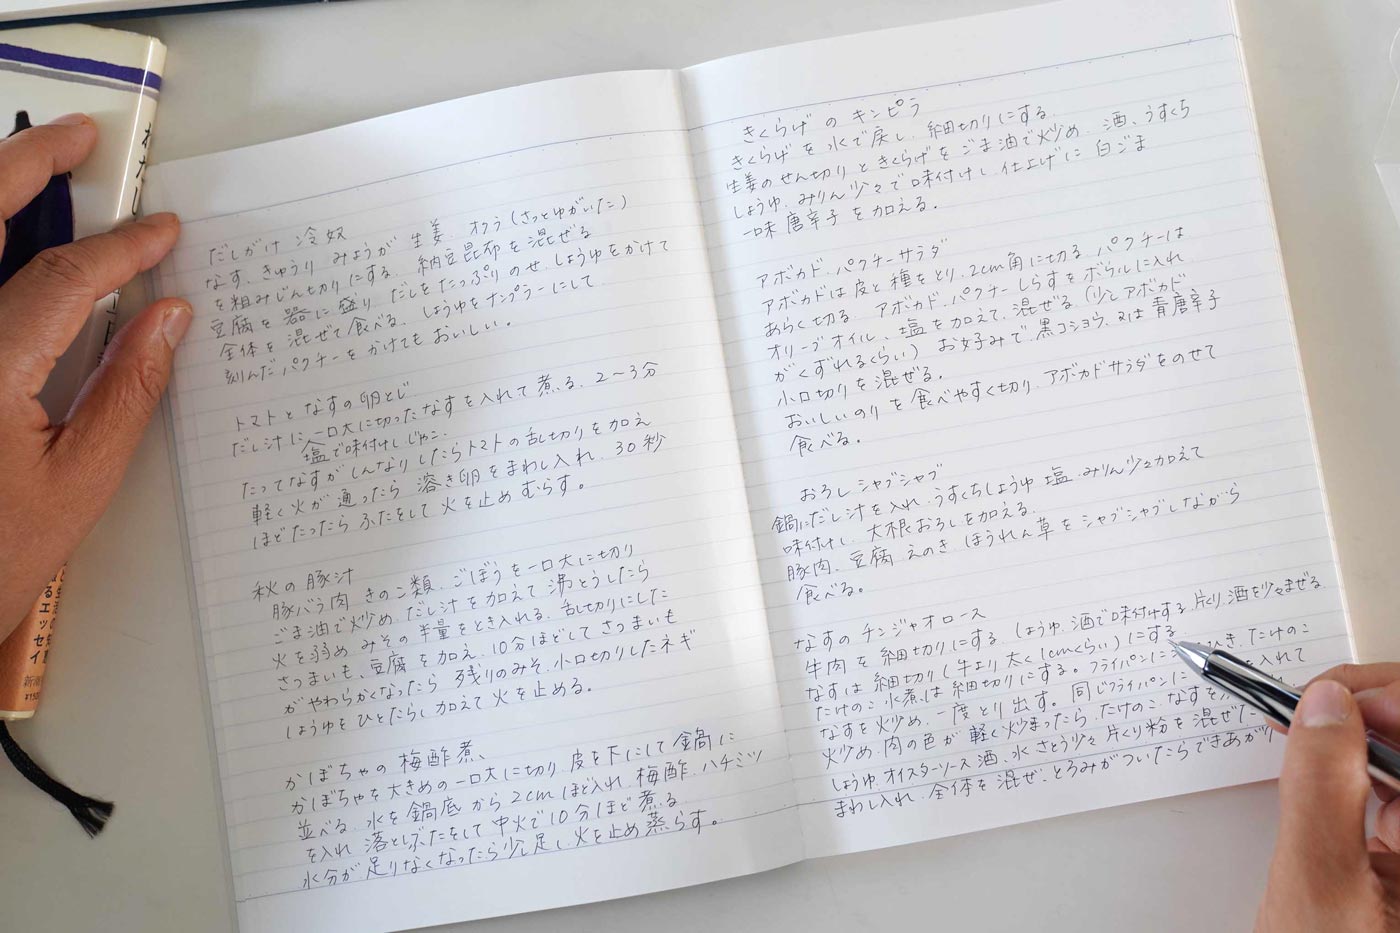 わたし
るエッセイ
だしがけ 冷奴
なす、きゅうり みょうが 生姜、オクラ(さっとゆがいた)
を粗みじん切りにする、納豆昆布を混ぜる
豆腐を器に盛り、だしをたっぷりのせ、しょうゆをかけて
全体を混ぜて食べる、しょうゆをナンプラーにして
刻んだパクチーをかけてもおいしい。
トマトとなすの卵とじ
だし汁に一口大に切ったなすを入れて煮る、2〜3分
塩で味付けし
たってなすがしんなりしたらトマトの乱切りを加え
軽く火が通ったら 溶き卵をまわし入れ、30秒
ほどたったらふたをして火を止めむらす。
秋の豚汁
豚バラ肉 きのこ類、ごぼうを一口大に切り
ごま油で炒め、だし汁を加えて沸とうしたら
火を弱めみその半量をとき入れる、乱切りにした
さつまいも、豆腐を加え、10分ほどしてさつまいも
がやわらかくなったら 残りのみそ、小口切りしたネギ
しょうゆをひとたらし加えて火を止める。
かぼちゃの梅酢煮、
かぼちゃを大きめの一口大に切り、皮を下にして鍋に
並べる、水を鍋底から2cmほど入れ、梅酢、ハチミツ
を入れ 落としぶたをして中火で10分ほど煮る
水分が足りなくなったら少し足し、火を止め蒸らす。
きくらげのキンピラ
きくらげを水で戻し、細切りにする、
生姜のせん切りときくらげをごま油で炒め、酒、うすくち
しょうゆ、みりん少々で味付けし 仕上げに白ごま
一味唐辛子を加える。
アボカド、パクチーサラダ
アボカドは皮と種をとり、2cm角に切る、パクチーは
あらく切る、アボカド、パクチーしらすをボウルに入れ
オリーブオイル、塩を加えて、混ぜる(少しアボカド
がくずれるくらい)お好みで、黒コショウ、又は青唐辛子
小口切りを混ぜる。
おいしいのりを食べやすく切り、アボカドサラダをのせて
食べる。
おろしシャブシャブ
鍋にだし汁を入れ、うすくちしょうゆ 塩、みりん少々加えて
味付けし、大根おろしを加える、
豚肉、豆腐、えのき、ほうれん草をシャブシャブしながら
食べる。
なすのチンジャオロース
牛肉を細切りにする、しょうゆ、酒で味付けする、片くり、酒を少々まぜる
なすは細切り(牛より太く1cmくらい)にする
たけのこ水煮は細切りにする。フライパンに ひき、たけのこ
なすを炒め、一度とり出す。同じフライパンに を入れて
炒め、肉の色が軽く炒まったら、たけのこ、なすを
しょうゆ、オイスターソース、酒、水、さとう少々片くり粉を混ぜた
まわし入れ、全体を混ぜ、とろみがついたらできあがり